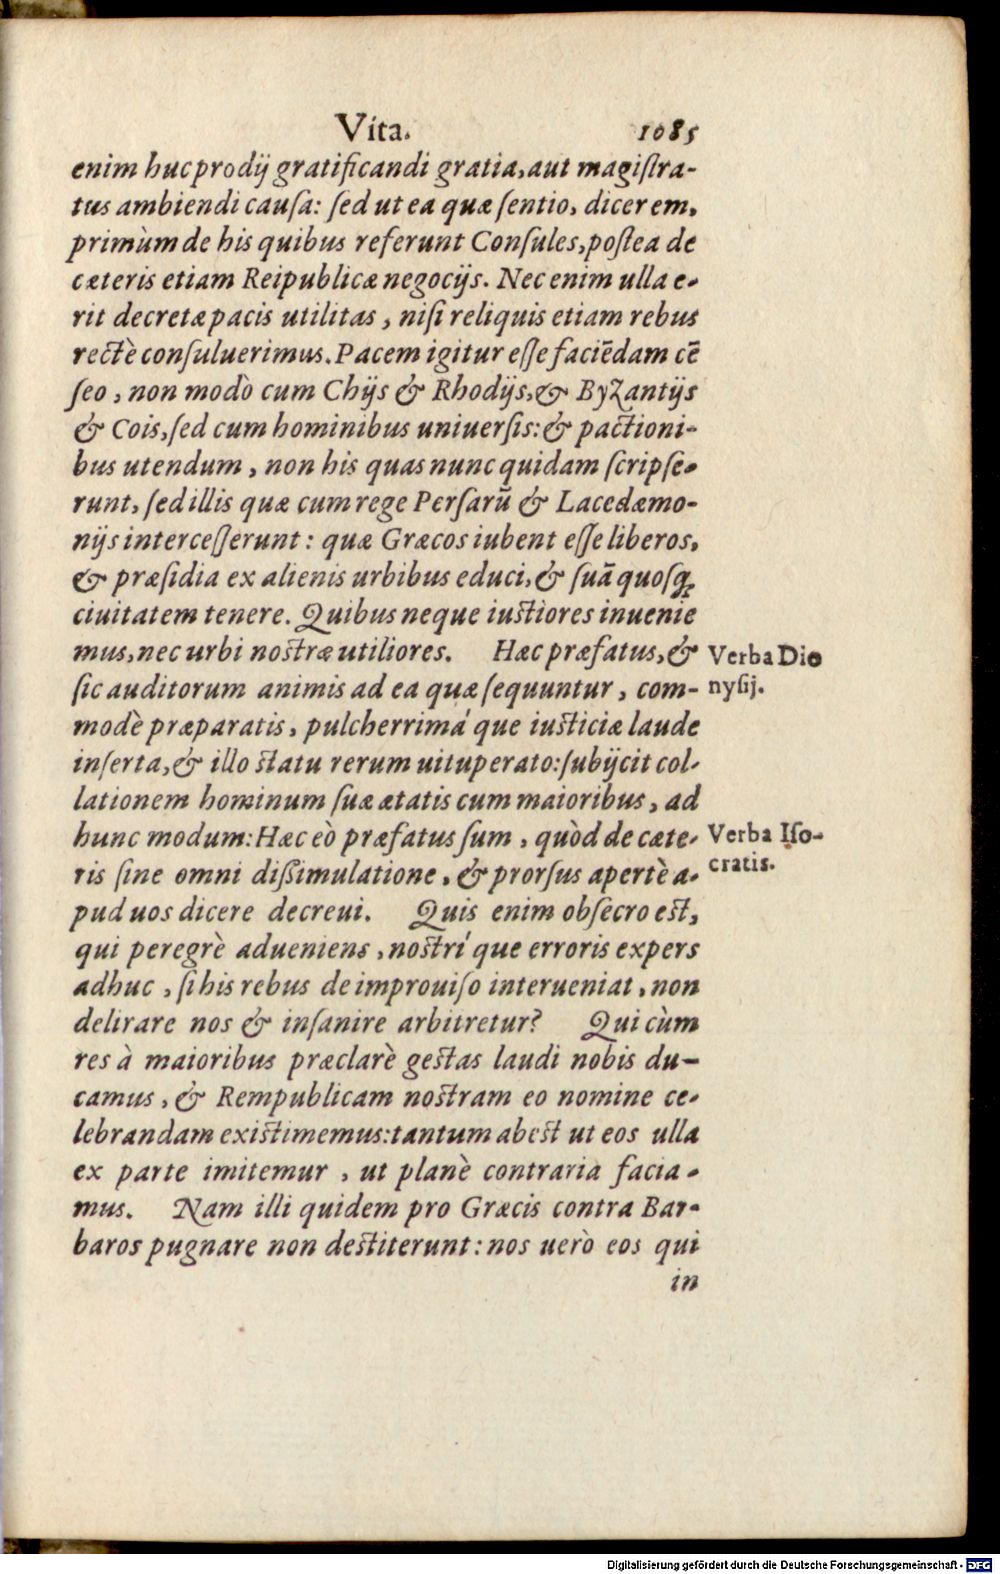 Vita. 1085
enim huc prodij gratificandi gratia, aut magiſtra-
tus ambiendi cauſa: ſed ut ea quæ ſentio, dicerem,
primùm de his quibus referunt Conſules, poſtea de
cæteris etiam Reipublicæ negocijs. Nec enim ulla e-
rit decretæ pacis utilitas, niſi reliquis etiam rebus
rectè conſuluerimus. Pacem igitur eſſe faciẽdam cẽ
ſeo, non modò cum Chijs & Rhodijs, & Byzantijs
& Cois, ſed cum hominibus uniuerſis: & pactioni-
bus utendum, non his quas nunc quidam ſcripſe-
runt, ſed illis quæ cum rege Perſarũ & Lacedæmo-
nijs interceſſerunt: quæ Græcos iubent eſſe liberos,
& præſidia ex alienis urbibus educi, & ſuã quoſq;
ciuitatem tenere. Quibus neque iuſtiores inuenie
mus, nec urbi noſtræ utiliores. Hæc præfatus, &
ſic auditorum animis ad ea quæ ſequuntur, com-
modè præparatis, pulcherrimá que iuſticiæ laude
inſerta, & illo ſtatu rerum uituperato: ſubijcit col-
lationem hominum ſuæ ætatis cum maioribus, ad
hunc modum: Hæc eò præfatus ſum, quòd de cæte-
ris ſine omni diſsimulatione, & prorſus apertè a-
pud uos dicere decreui. Quis enim obſecro eſt,
qui peregrè adueniens, noſtrí que erroris expers
adhuc, ſi his rebus de improuiſo interueniat, non
delirare nos & inſanire arbitretur? Qui cùm
res à maioribus præclarè geſtas laudi nobis du-
camus, & Rempublicam noſtram eo nomine ce-
lebrandam exiſtimemus: tantum abeſt ut eos ulla
ex parte imitemur, ut planè contraria facia-
mus. Nam illi quidem pro Græcis contra Bar-
baros pugnare non deſtiterunt: nos uerò eos qui
in
Verba Dio
nyſij.
Verba Iſo-
cratis.
Digitalisierung gefördert durch die Deutsche Forschungsgemeinschaft - DFG